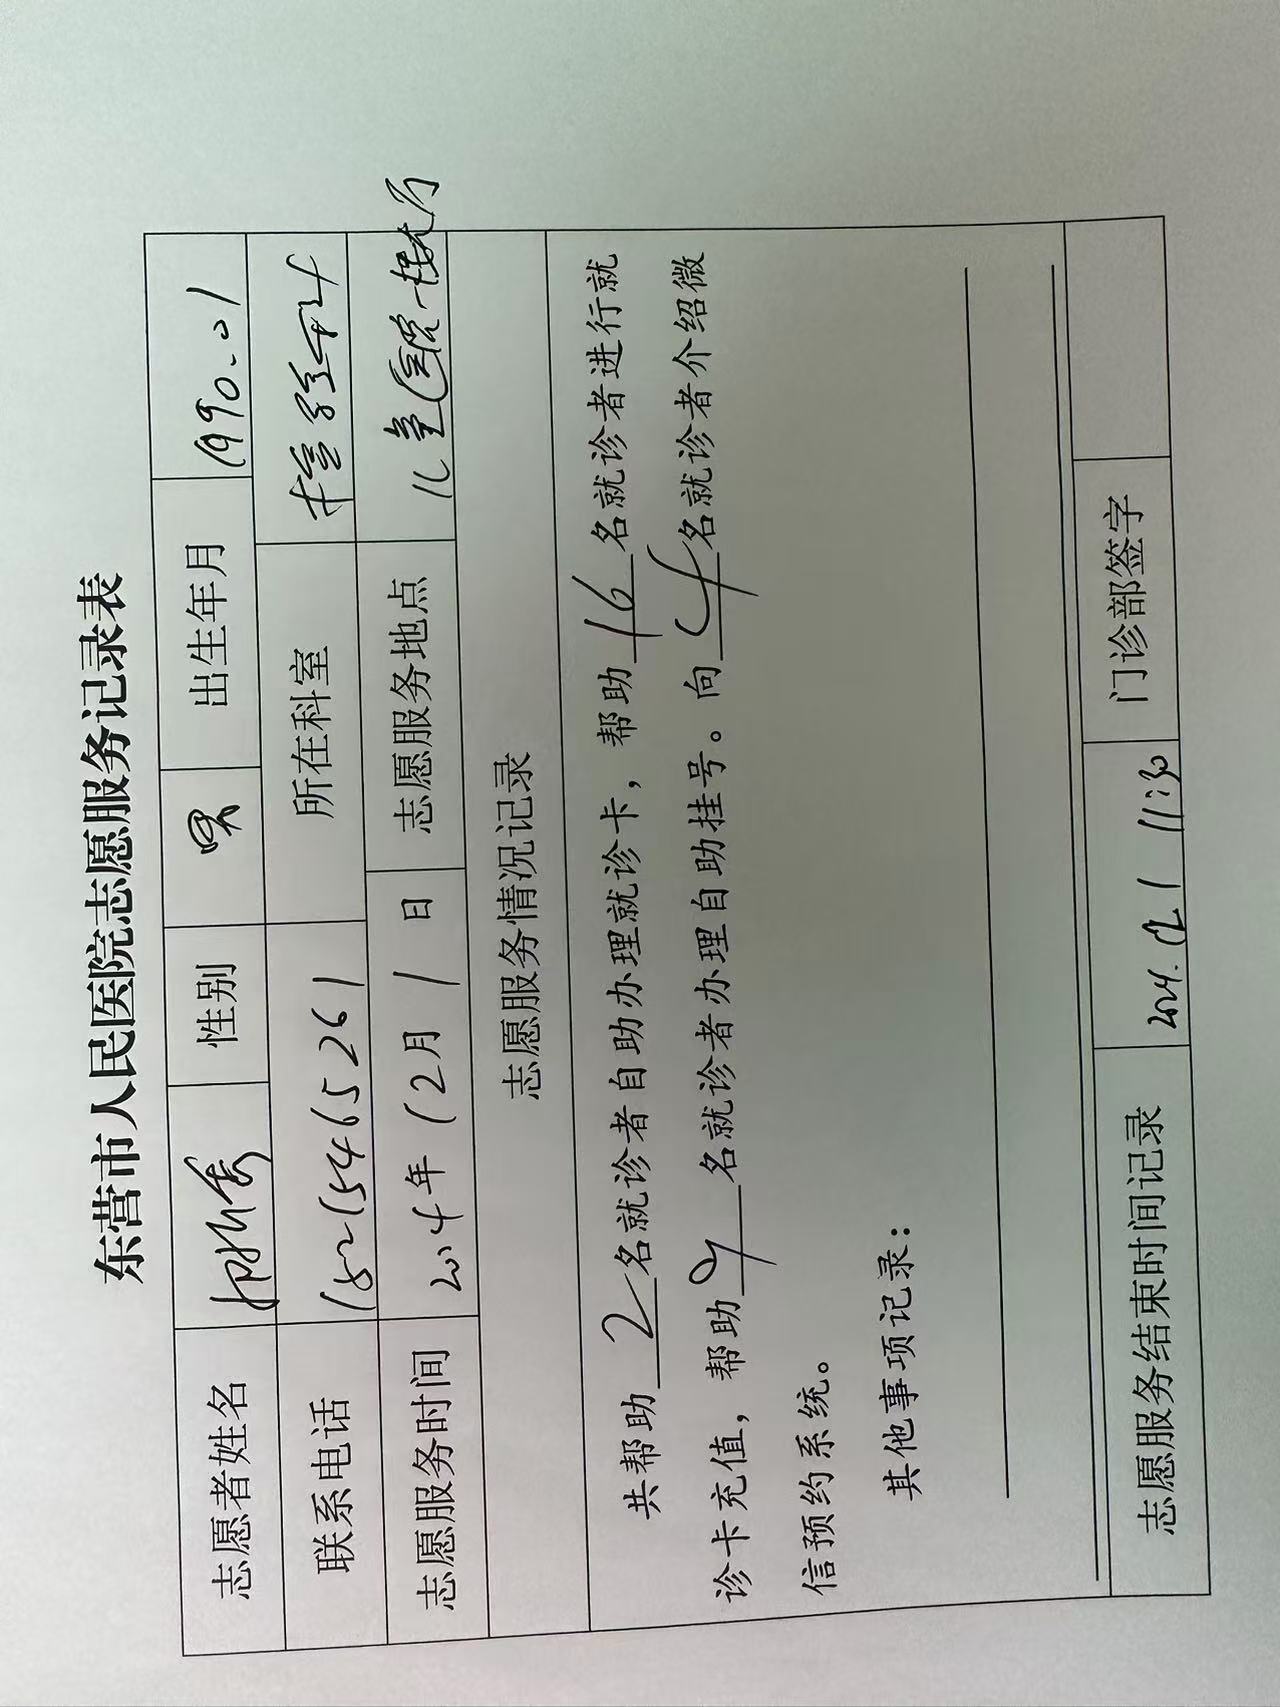 东营市人民医院志愿服务记录表
志愿者姓名 性别 男 出生年月 1990.01
联系电话 18215465261 所在科室 检验科
志愿服务时间 2024年12月1日 志愿服务地点 儿童医院一楼大厅
志愿服务情况记录
共帮助2名就诊者自助办理就诊卡，帮助16名就诊者进行就
诊卡充值，帮助9名就诊者办理自助挂号。向4名就诊者介绍微
信预约系统。
其他事项记录：
志愿服务结束时间记录 2024.12.1 11:30 门诊部签字